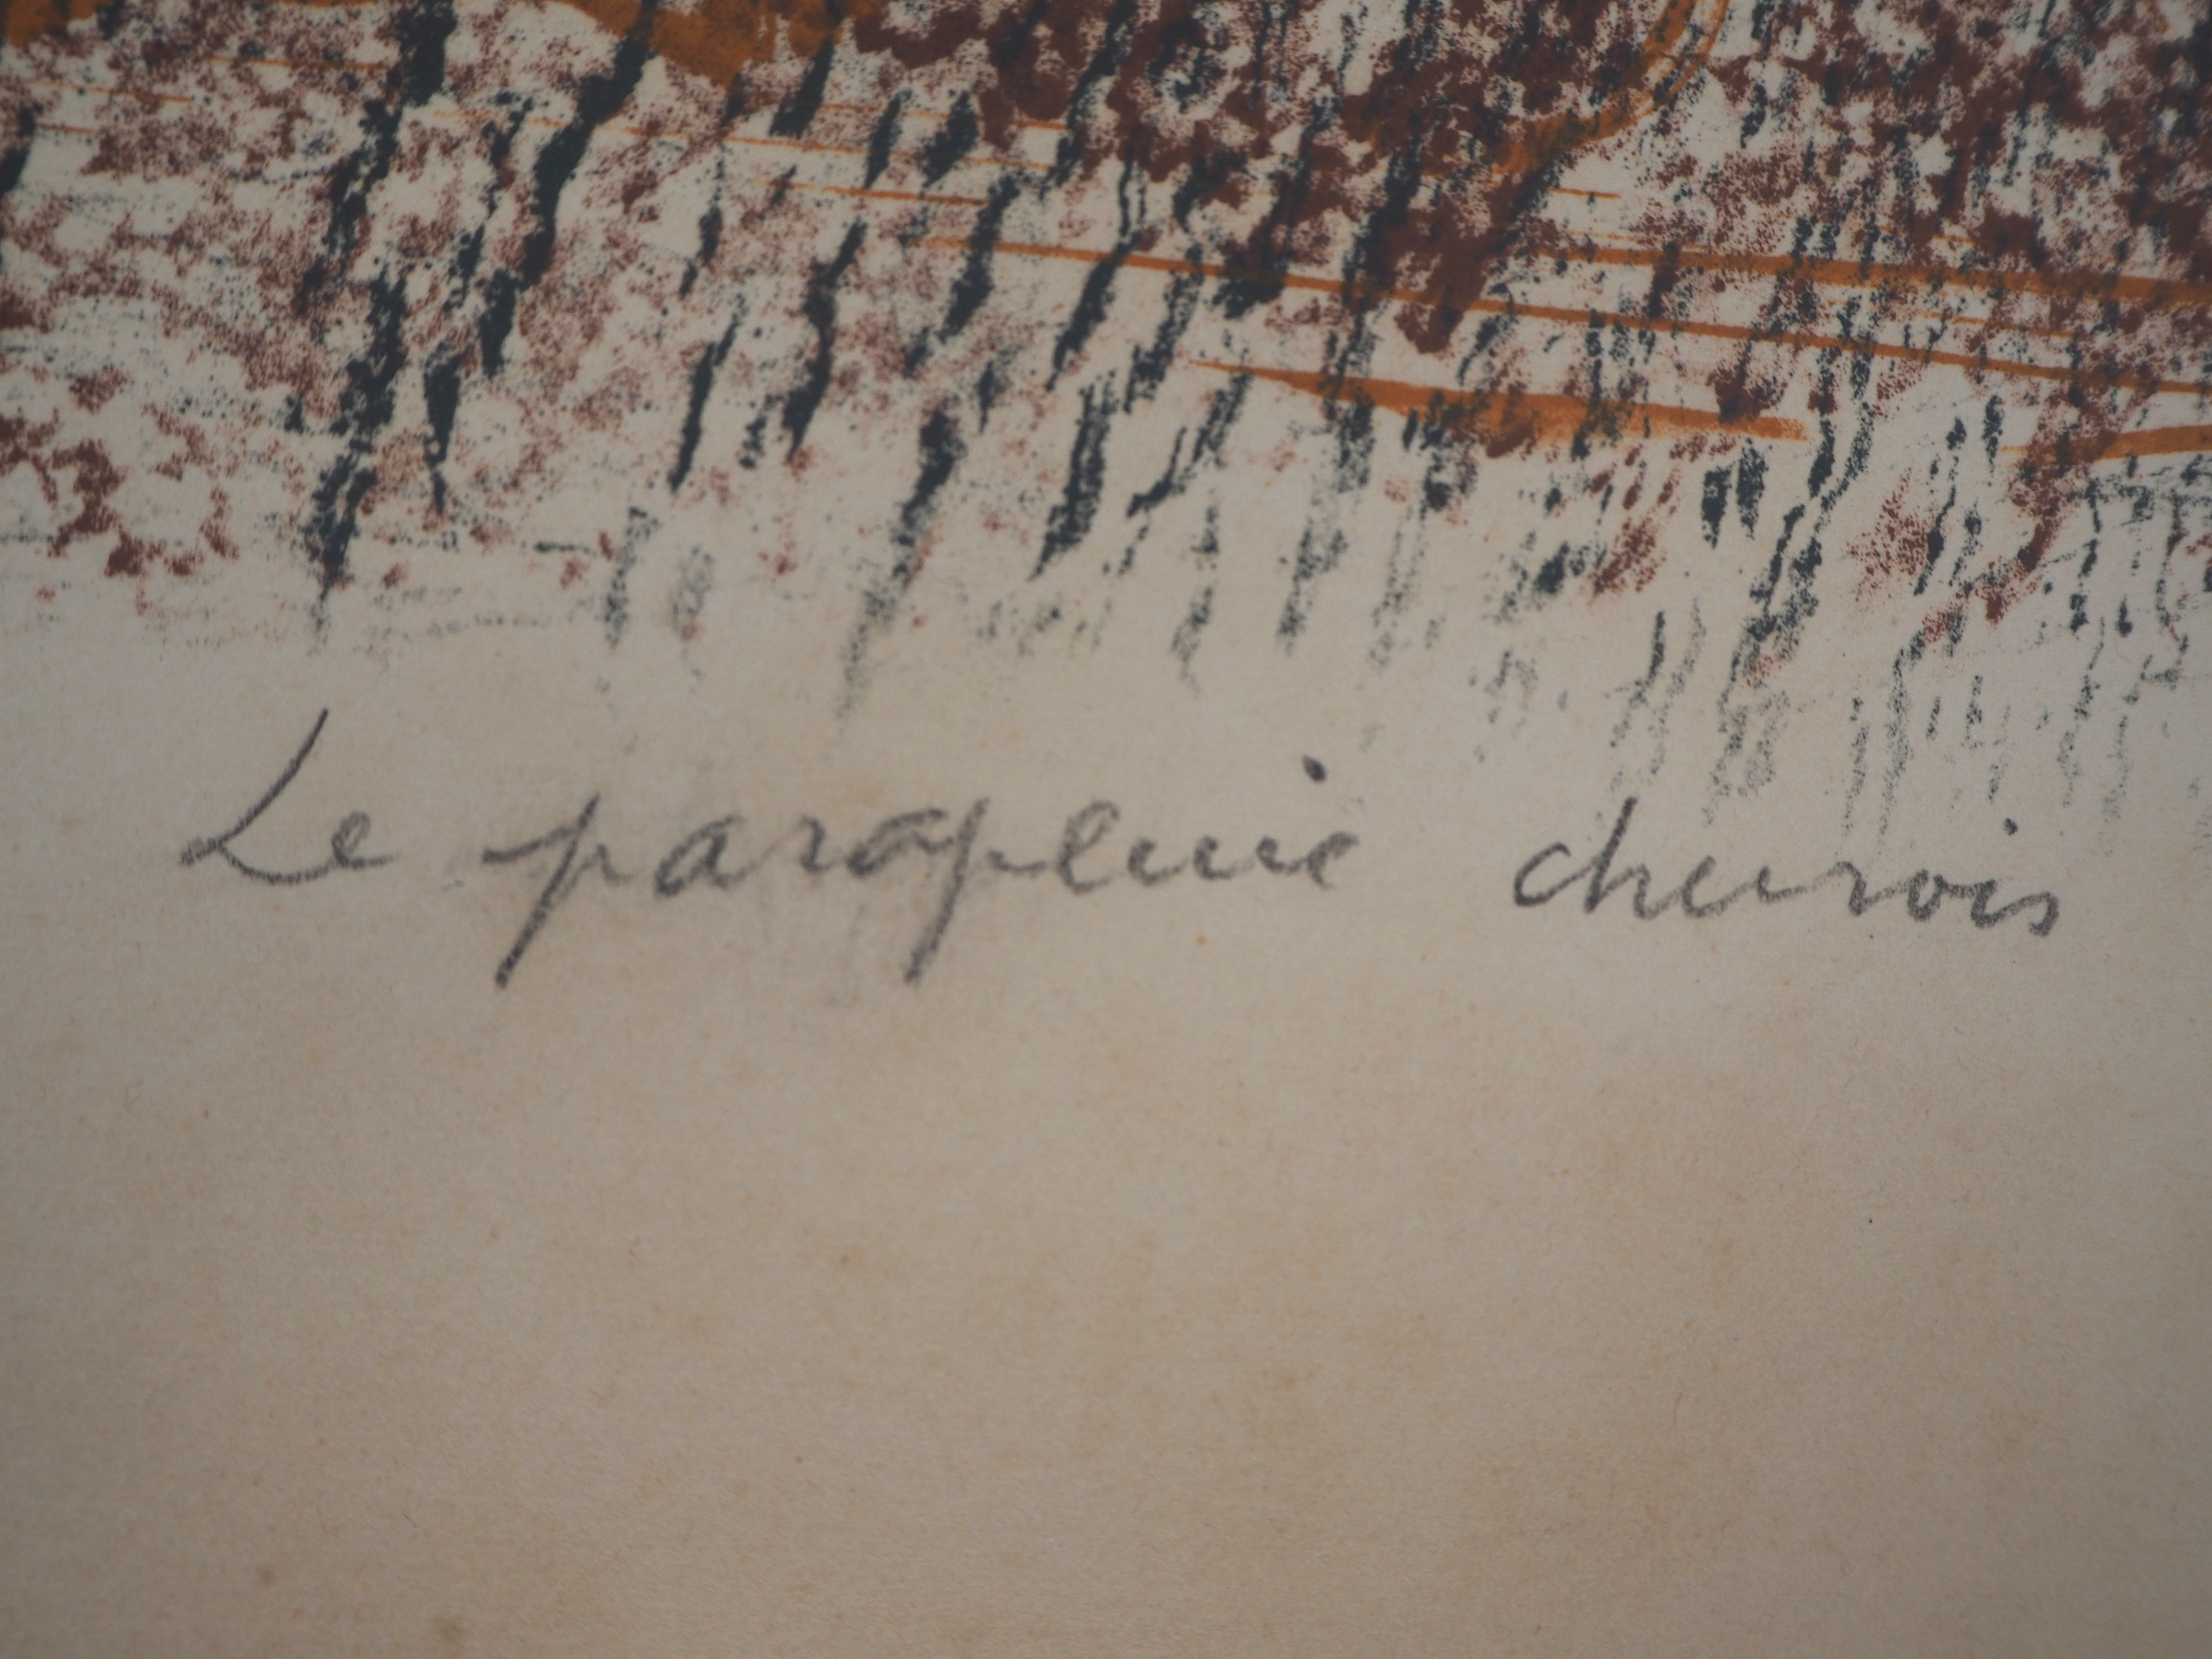 Le parapluie chinois